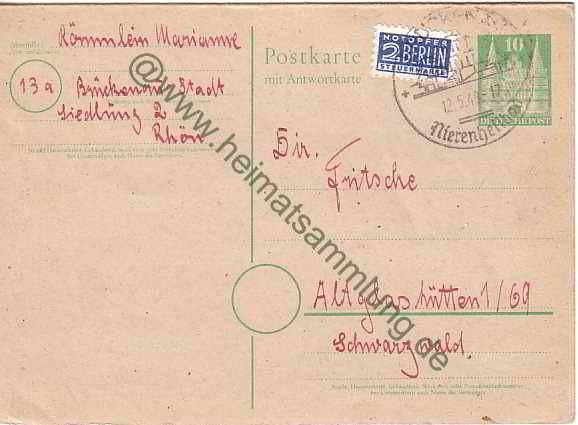 Römmlein Marianne
13a
Brückenau-Stadt
Siedlung 2
Rhön
Postkarte
mit Antwortkarte
NOTOPFER
2 BERLIN
STEUERMARKE
10
DEUTSCHE POST
12.5.49
Dir.
Fritsche
Altglashütten 1/69
Schwarzwald.
@www.heimatsammlung.de